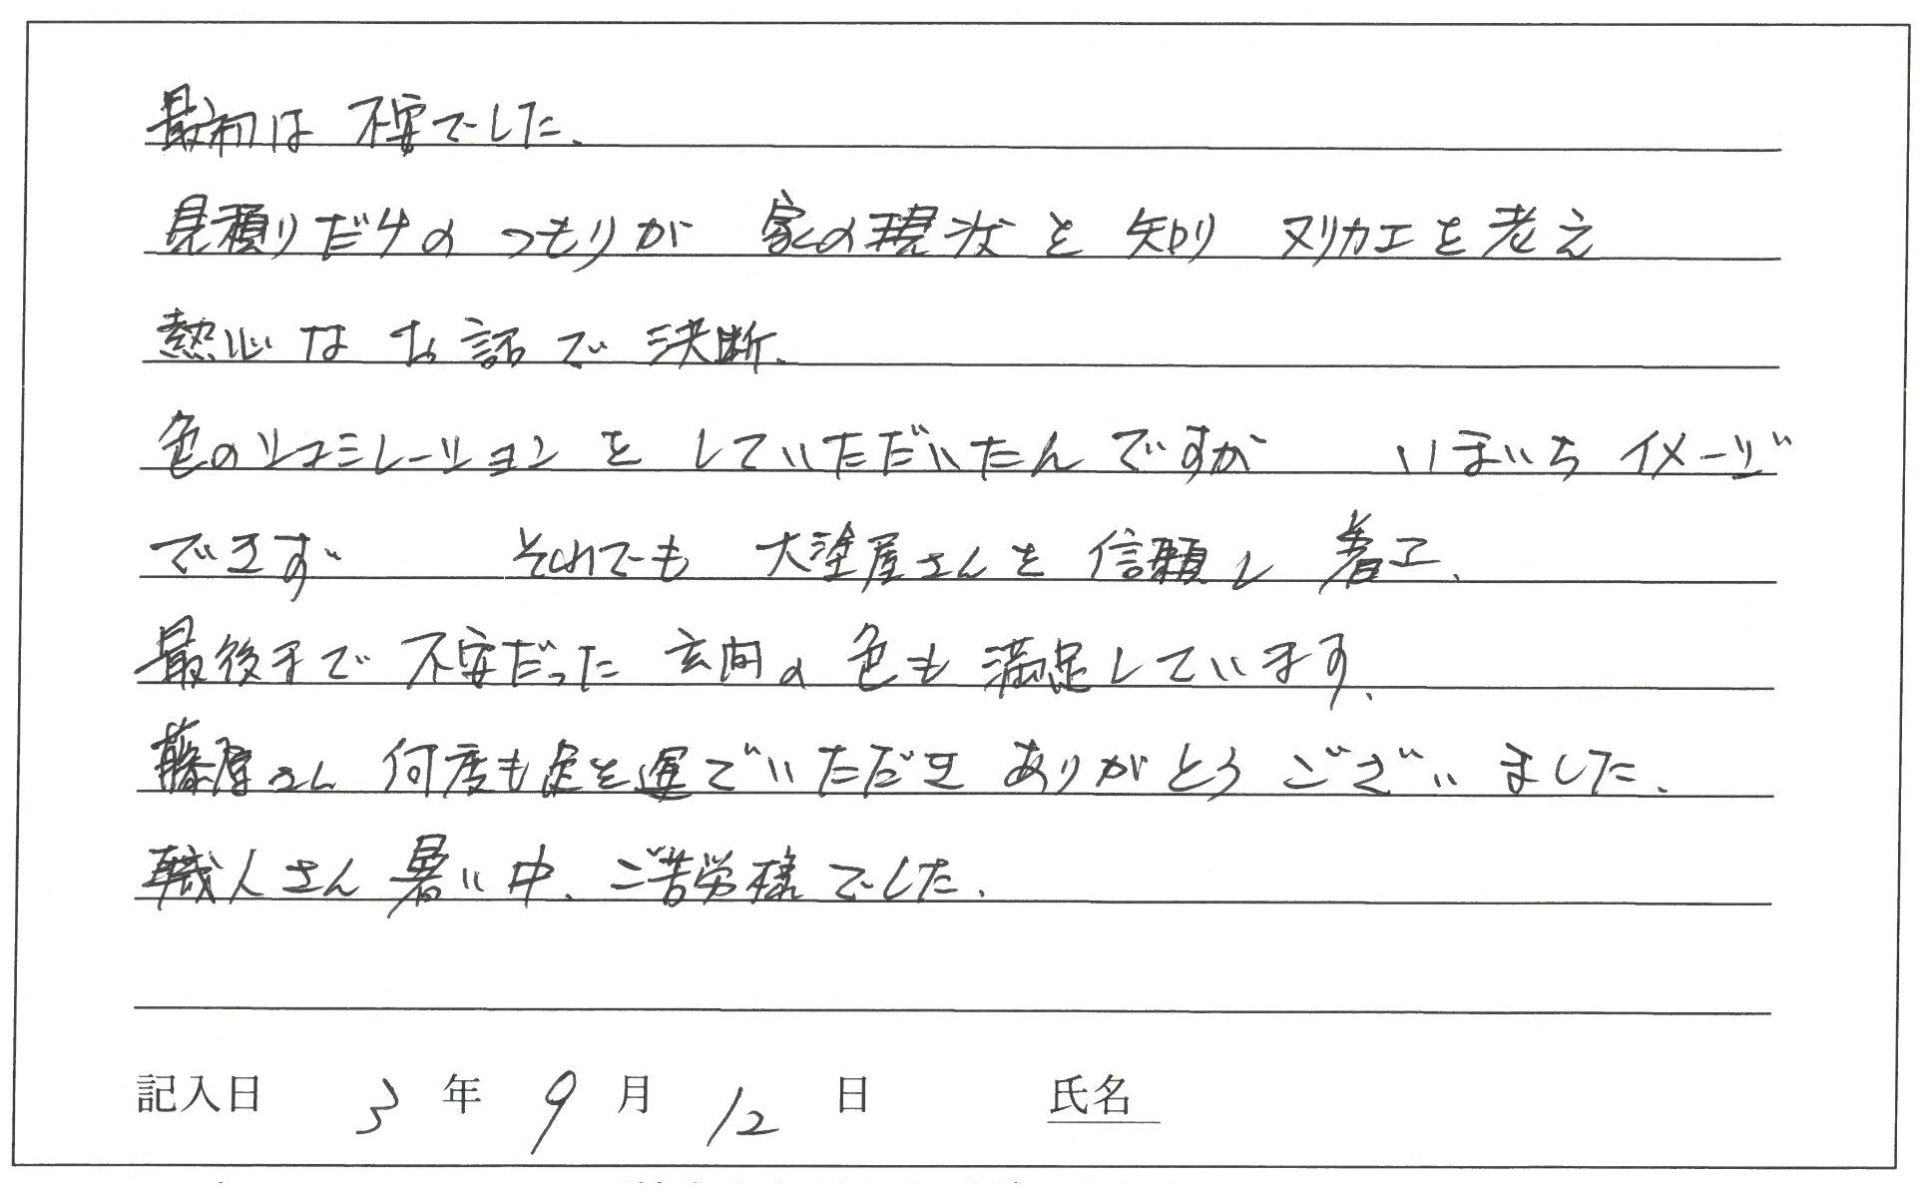 最初は 不安でした、
見積りだけの つもりが 家の現状を 知り ヌリカエを考え
熱心な お話で 決断、
色のシュミレーションを していただいたんですが いまいち イメージ
できず それでも 大塗屋さんを 信頼し 着工、
最後まで 不安だった 玄関の 色も 満足しています、
藤原さん 何度も足を運でいただき ありがとう ございました、
職人さん 暑い中、ご苦労様でした、
記入日 3 年 9 月 12 日 氏名